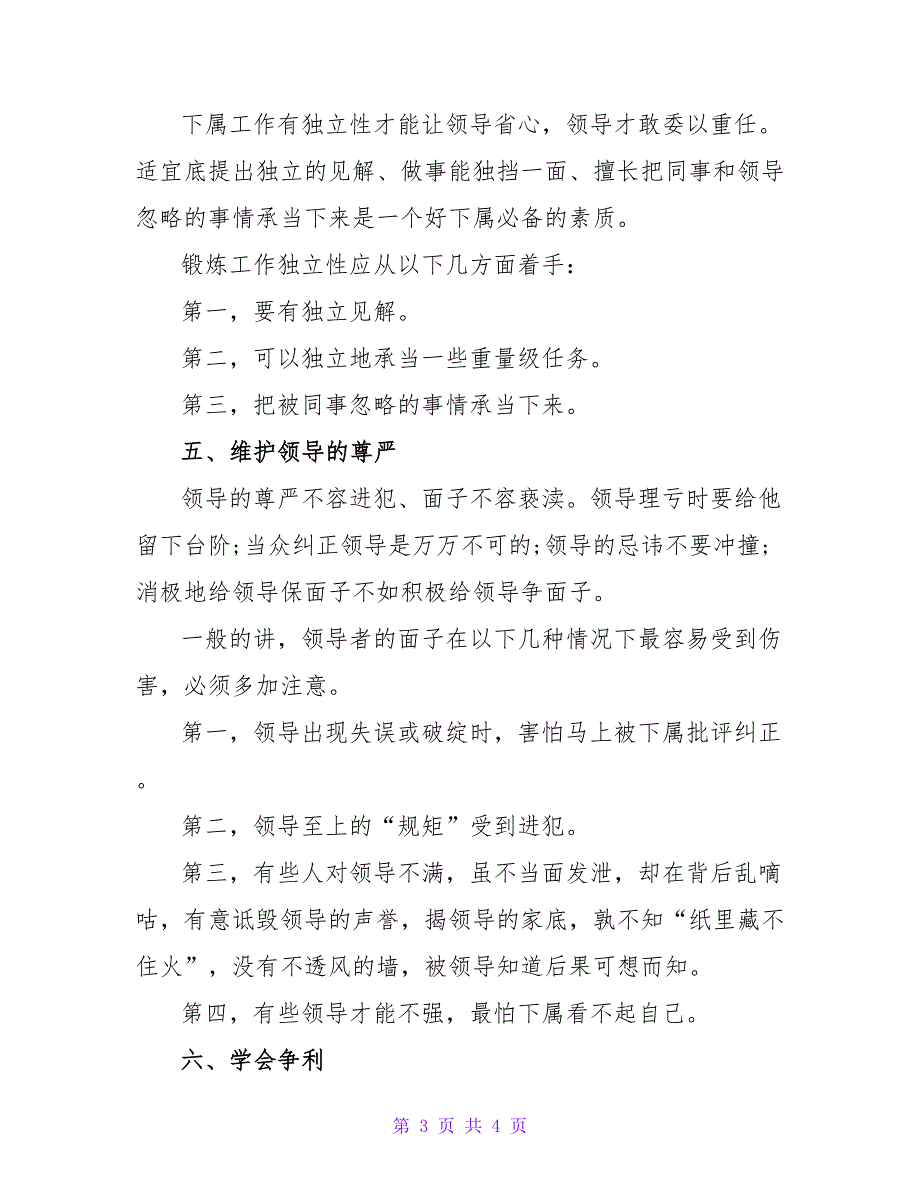 下属工作有独立性才能让领导省心，领导才敢委以重任。
适宜底提出独立的见解、做事能独挡一面、擅长把同事和领导
忽略的事情承当下来是一个好下属必备的素质。
锻炼工作独立性应从以下几方面着手：
第一，要有独立见解。
第二，可以独立地承当一些重量级任务。
第三，把被同事忽略的事情承当下来。
五、维护领导的尊严
领导的尊严不容进犯、面子不容亵渎。领导理亏时要给他
留下台阶;当众纠正领导是万万不可的;领导的忌讳不要冲撞;
消极地给领导保面子不如积极给领导争面子。
一般的讲，领导者的面子在以下几种情况下最容易受到伤
害，必须多加注意。
第一，领导出现失误或破绽时，害怕马上被下属批评纠正
。
第二，领导至上的“规矩”受到进犯。
第三，有些人对领导不满，虽不当面发泄，却在背后乱嘀
咕，有意诋毁领导的声誉，揭领导的家底，孰不知“纸里藏不
住火”，没有不透风的墙，被领导知道后果可想而知。
第四，有些领导才能不强，最怕下属看不起自己。
六、学会争利
第 3 页 共 4 页